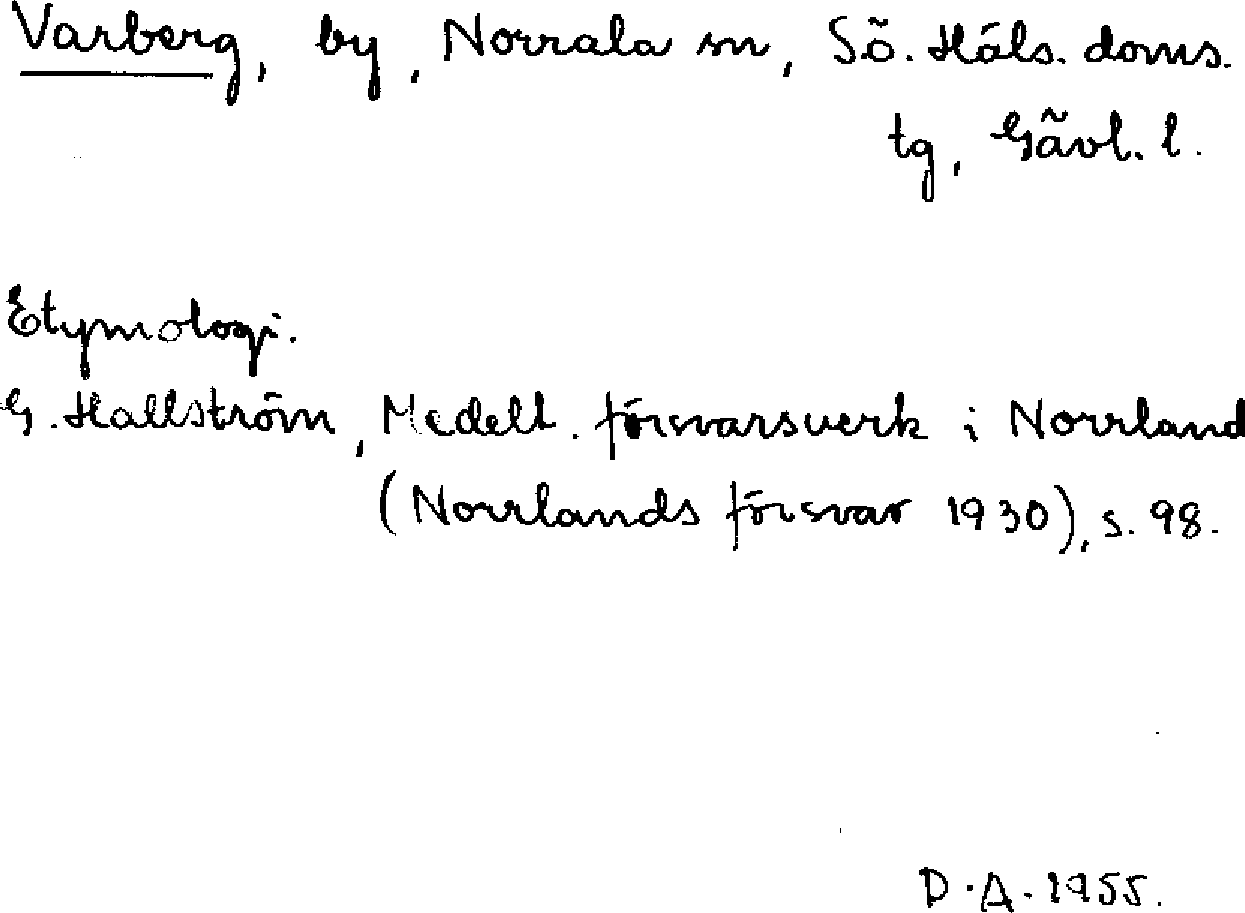 Varberg, by, Norrala sn, Sö. Häls. doms.
tg, Gävl. l.
Etymologi.
G. Hallström, Medelt. försvarsverk i Norrland
(Norrlands försvar 1930), s. 98.
D.A. 1955.